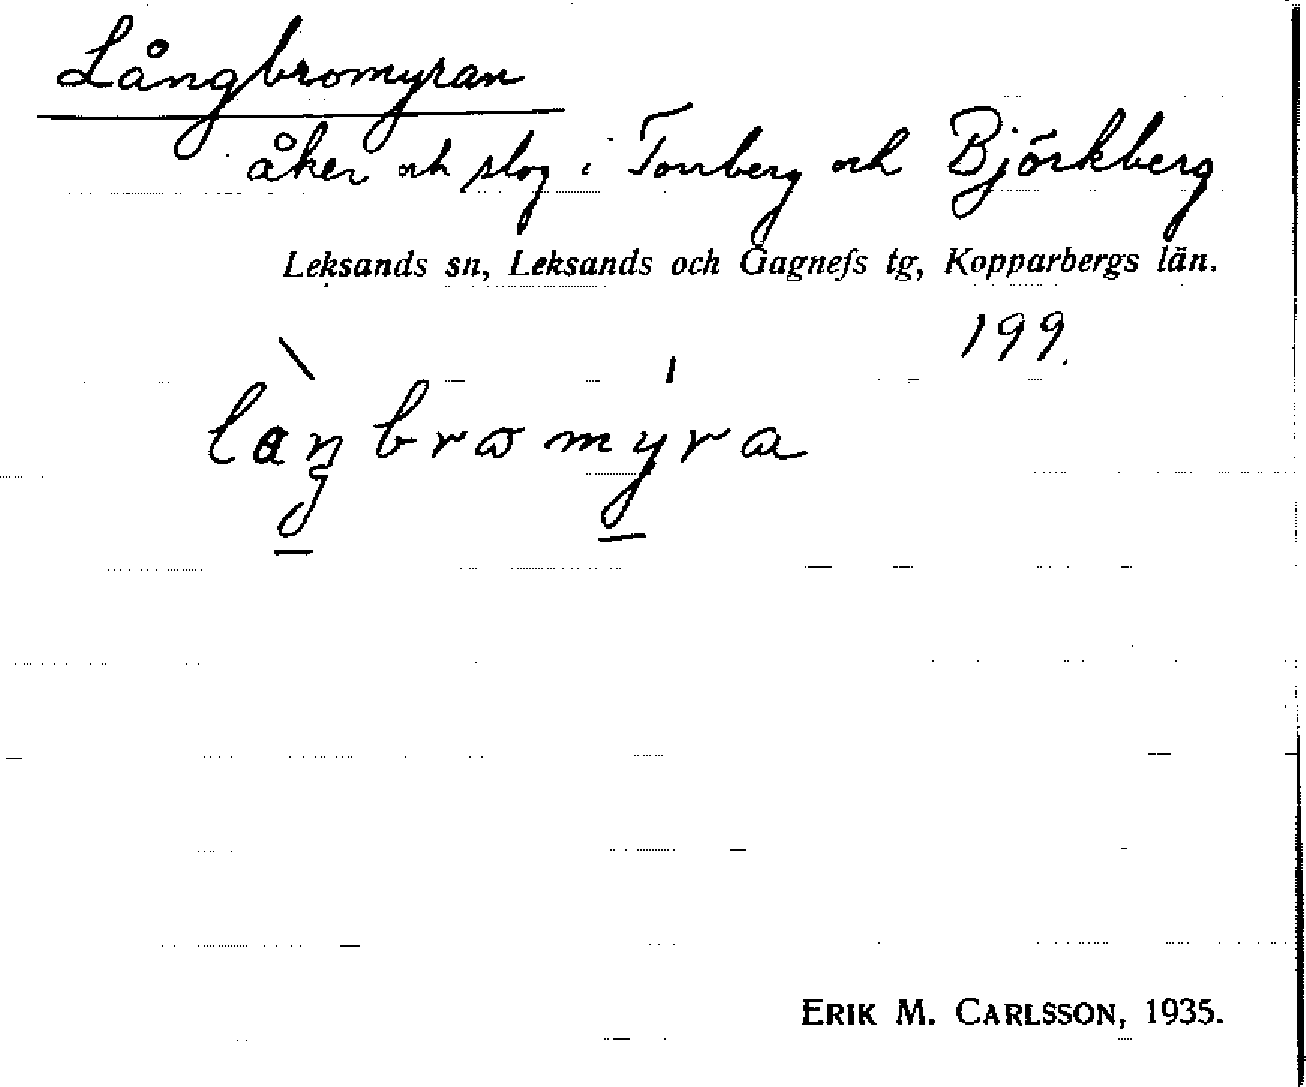 Långbromyran
åker och slog i Tonberg och Björkberg
Leksands sn, Leksands och Gagnefs tg, Kopparbergs län.
199.
laŋbrɷmyra
ERIK M. CARLSSON, 1935.